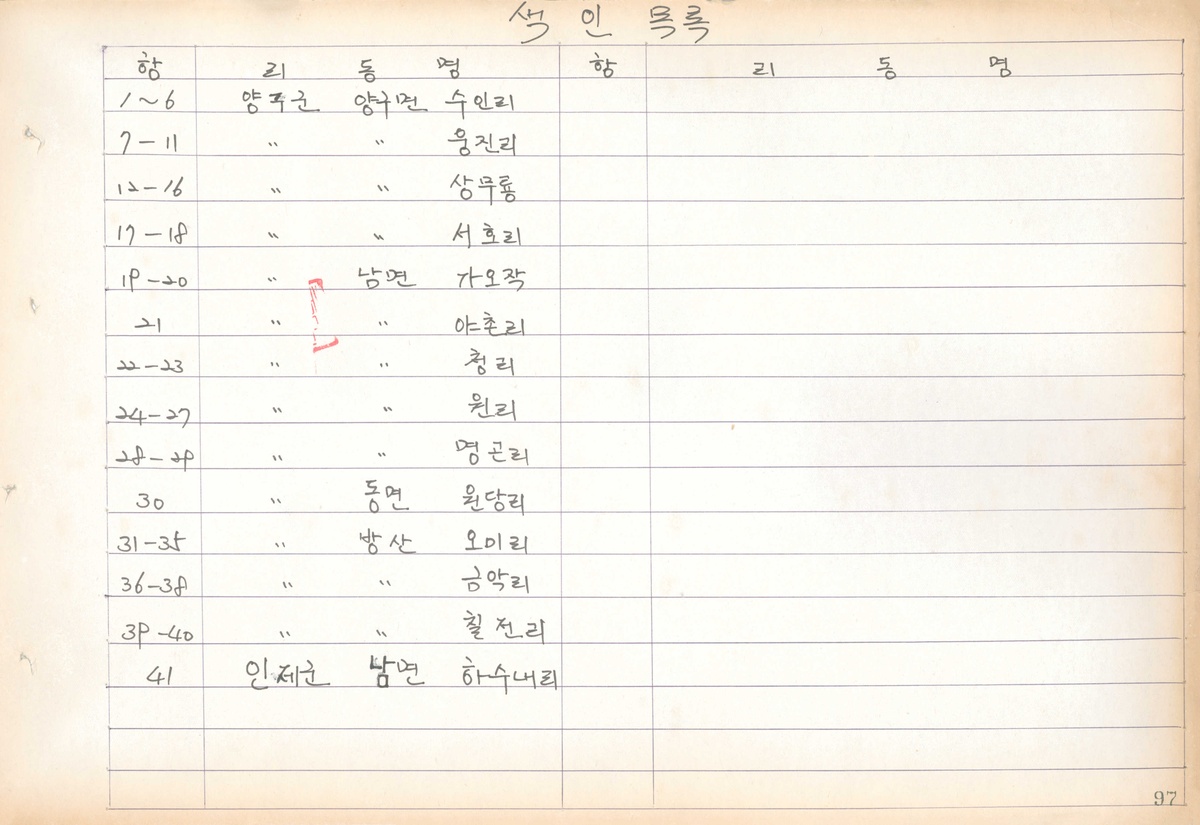 색 인 목록
항 리 동 명 항 리 동 명
1~6 양구군 양구면 수인리
7-11 〃 〃 웅진리
12-16 〃 〃 상무룡
17-18 〃 〃 서호리
19-20 〃 남면 가오작
21 〃 〃 야촌리
22-23 〃 〃 청리
24-27 〃 〃 원리
28-29 〃 〃 명곤리
30 〃 동면 원당리
31-35 〃 방산 오미리
36-38 〃 〃 금악리
39-40 〃 〃 칠전리
41 인제군 남면 하수내리
97